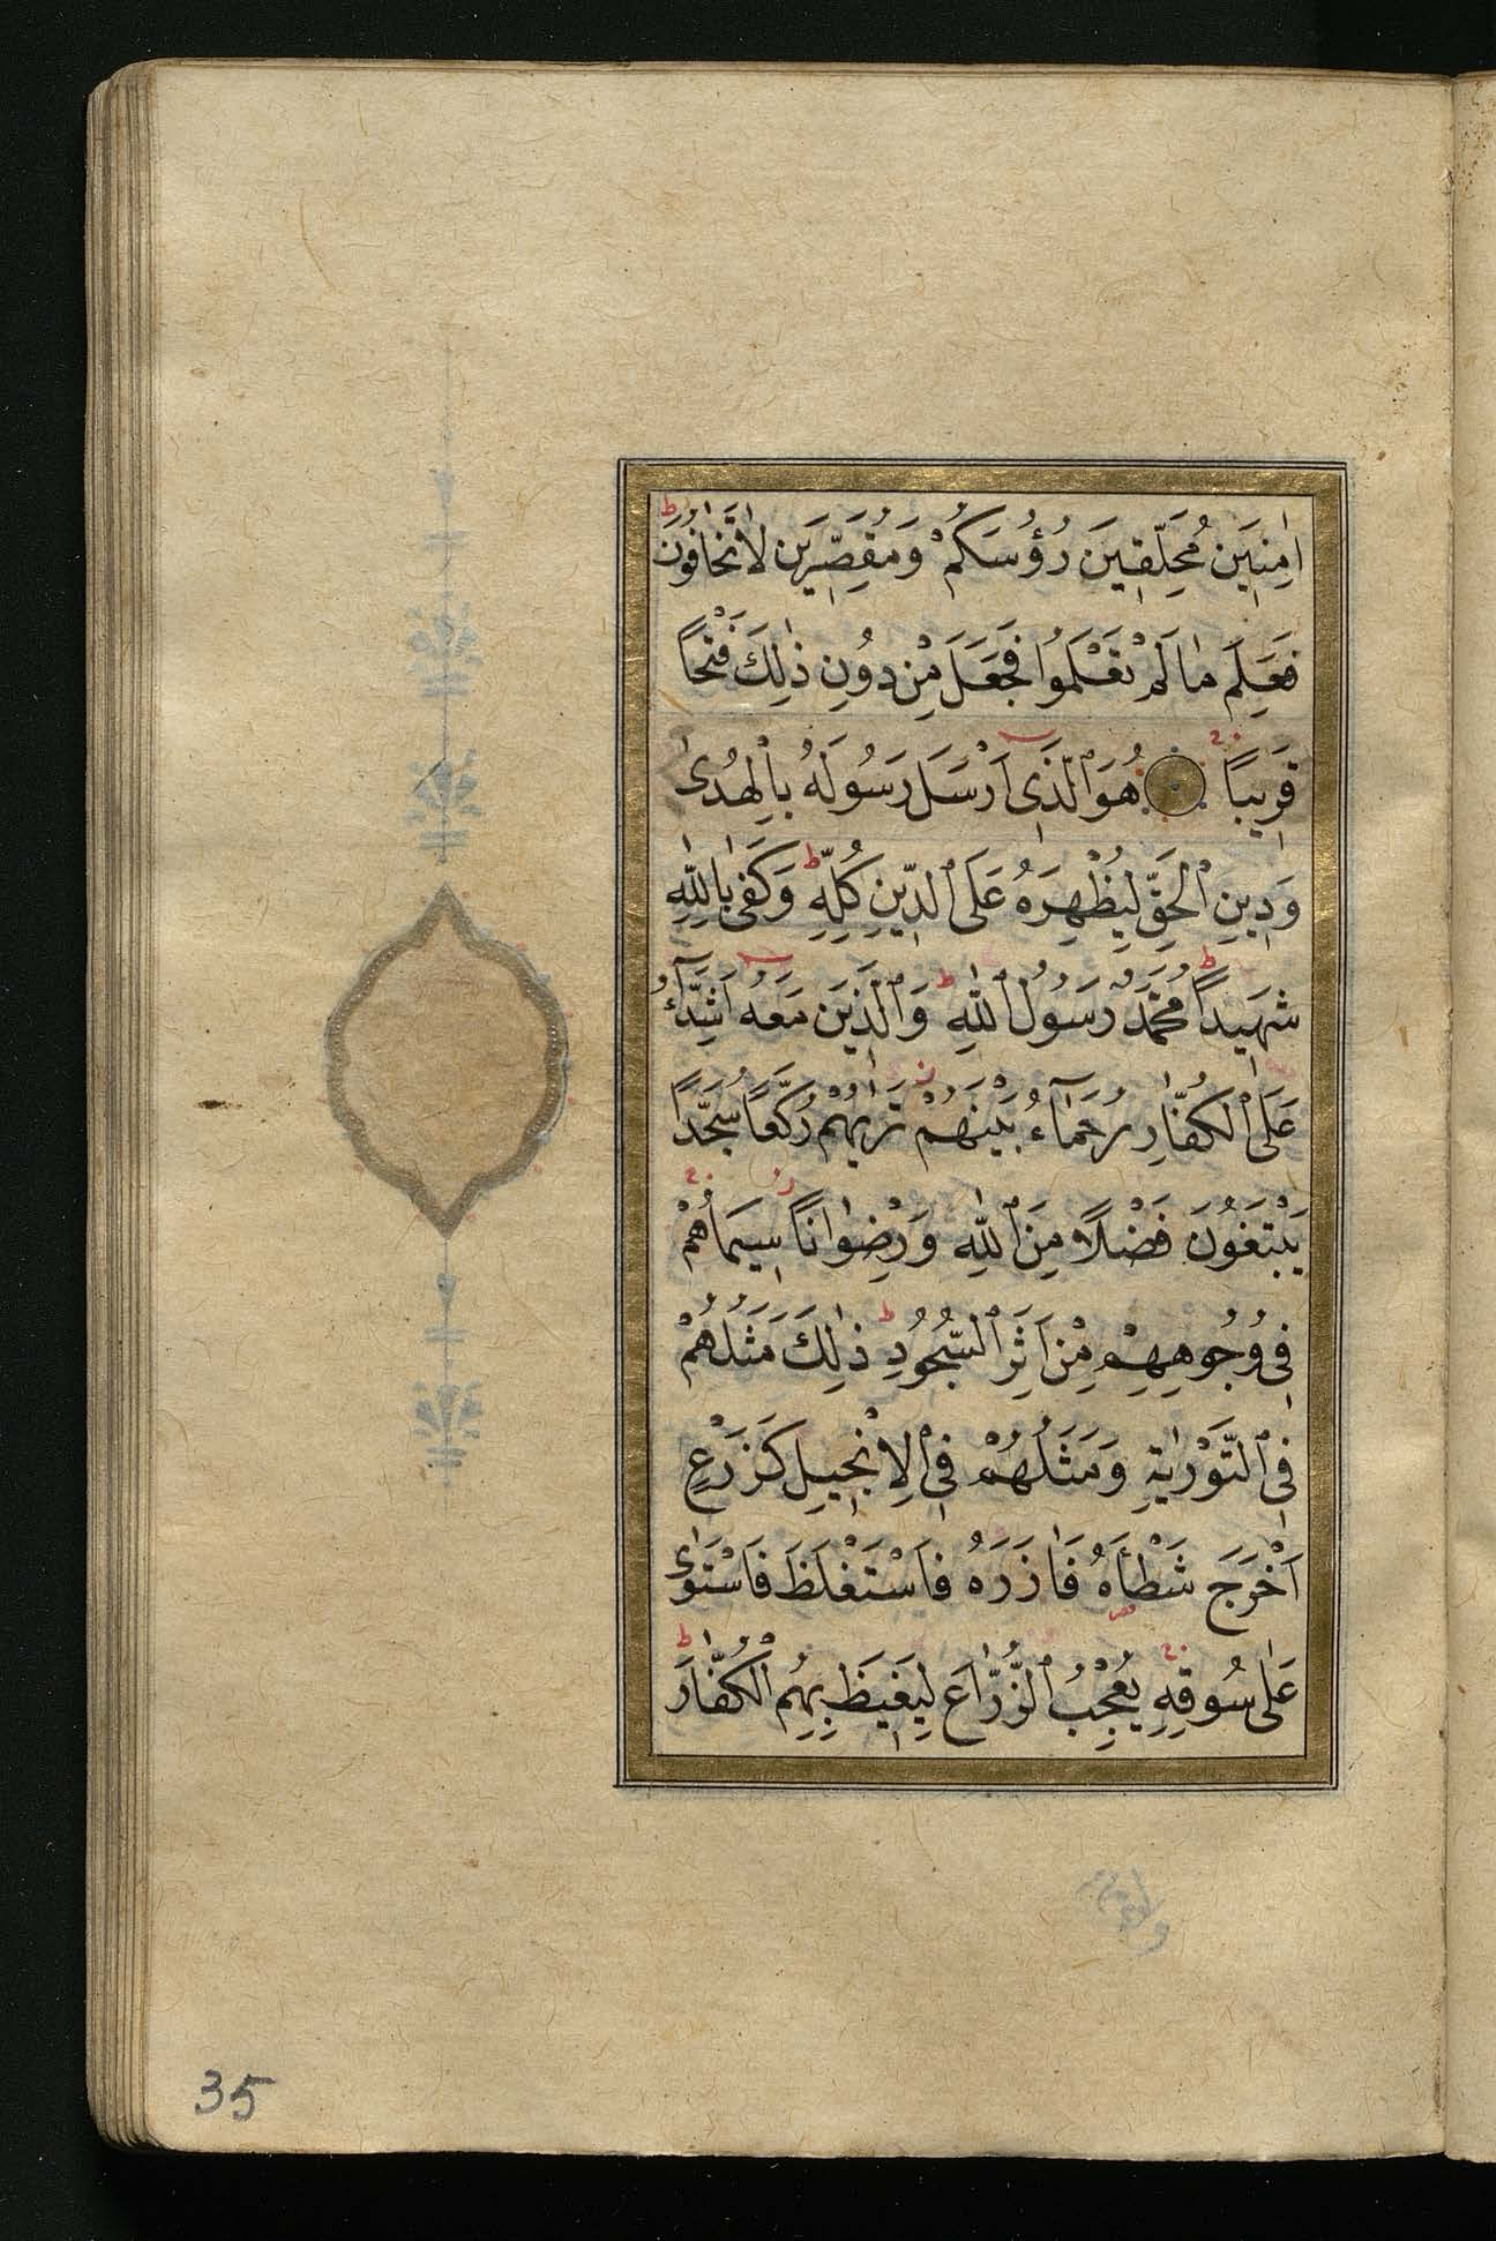 اٰمِنِينَ مُحَلِّقِينَ رُؤُسَكُمْ وَمُقَصِّرِينَ لَا تَخَافُونَ ط
فَعَلِمَ مَا لَمْ تَعْلَمُوا فَجَعَلَ مِنْ دُونِ ذٰلِكَ فَتْحًا
قَرِيبًا هُوَ ٱلَّذِى اَرْسَلَ رَسُولَهُ بِالْهُدٰى
وَدِينِ ٱلْحَقِّ لِيُظْهِرَهُ عَلَى ٱلدِّينِ كُلِّهِ ط وَكَفٰى بِاللّٰهِ
شَهِيدًا ط مُحَمَّدٌ رَسُولُ ٱللّٰهِ ط وَٱلَّذِينَ مَعَهُ اَشِدَّآءُ
عَلَى ٱلْكُفَّارِ رُحَمَآءُ بَيْنَهُمْ تَرٰيهُمْ رُكَّعًا سُجَّدًا
يَبْتَغُونَ فَضْلًا مِنَ ٱللّٰهِ وَرِضْوَانًا سِيمَاهُمْ
فِى وُجُوهِهِمْ مِنْ اَثَرِ ٱلسُّجُودِ ط ذٰلِكَ مَثَلُهُمْ
فِى ٱلتَّوْرٰيةِ وَمَثَلُهُمْ فِى ٱلْاِنْجِيلِ كَزَرْعٍ
اَخْرَجَ شَطْأَهُ فَاٰزَرَهُ فَاسْتَغْلَظَ فَاسْتَوٰى
عَلٰى سُوقِهِ يُعْجِبُ ٱلزُّرَّاعَ لِيَغِيظَ بِهِمُ ٱلْكُفَّارَ ط
35